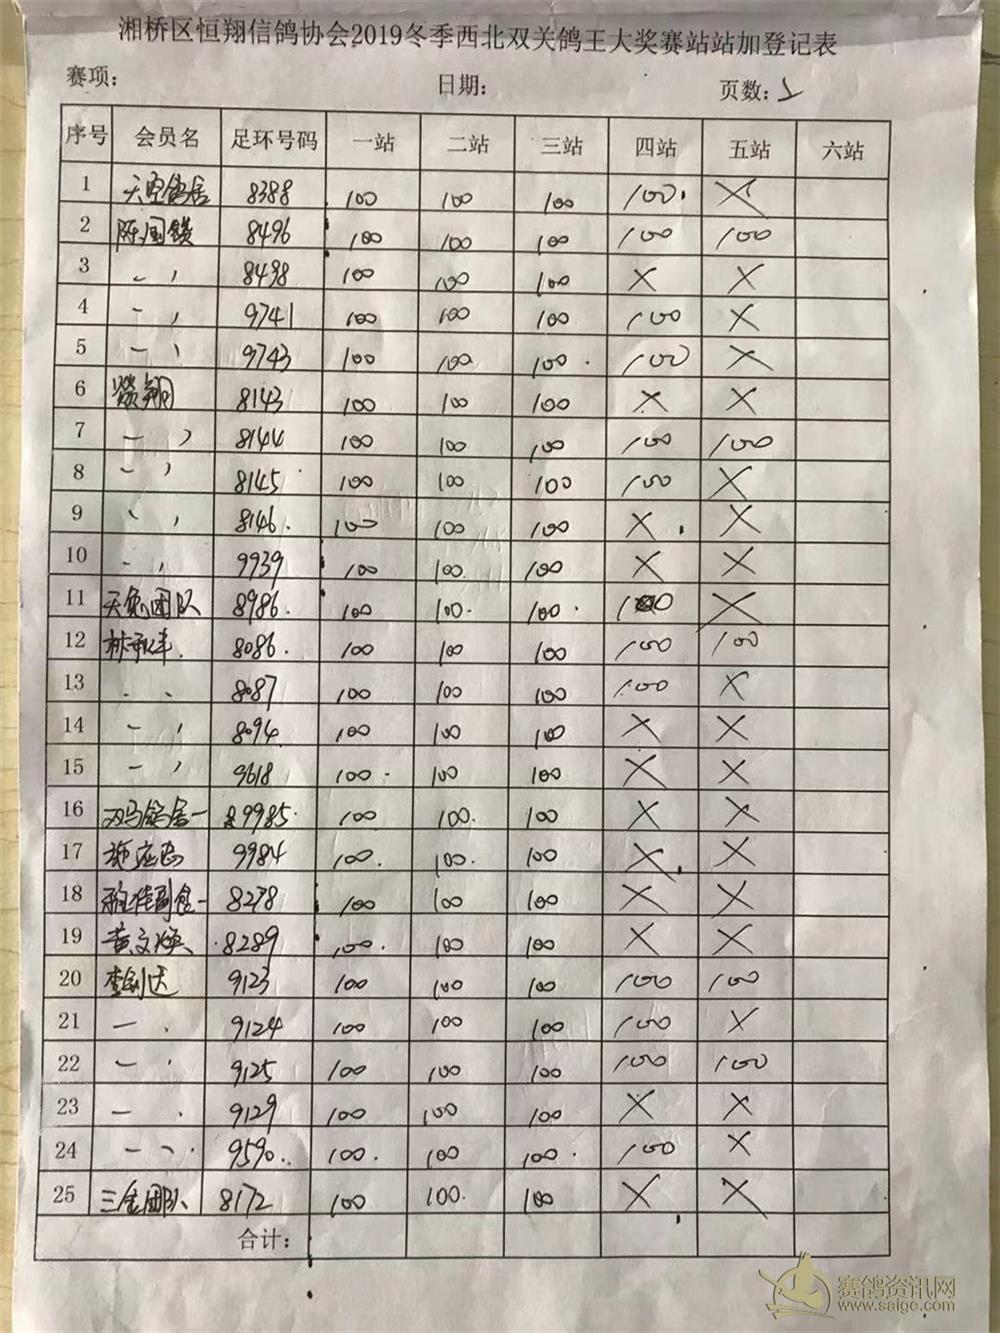 湘桥区恒翔信鸽协会2019冬季西北双关鸽王大奖赛站站加登记表
赛项: 日期: 页数:
序号 会员名 足环号码 一站 二站 三站 四站 五站 六站
1 天空鸽居 8388 100 100 100 100. ×
2 陈国镇 8496 100 100 100 100 100
3 8498 100 100 100 × ×
4 9741 100 100 100 100 ×
5 9743 100 100 100 100 ×
6 翔 8143 100 100 100 × ×
7 8144 100 100 100 100 100
8 8145 100 100 100 100 ×
9 8146. 100 100 100 × ×
10 9939 100 100 100 × ×
11 天兔团队 8986. 100 100. 100. 100 ×
12 8086. 100 100 100 100 100
13 8087 100 100 100 100 ×
14 8094. 100 100 100 × ×
15 9618 100. 100 100 × ×
16 双马鸽居一 9985. 100 100. 100 × ×
17 施应志 9984 100. 100. 100 × ×
18 8278 100 100 100 × ×
19 黄文焕 8289 100. 100 100 × ×
20 李创达 9123 100 100 100 100 100
21 9124 100 100 100 100 ×
22 9125 100 100 100 100 100
23 9129 100 100 100 × ×
24 9590.. 100. 100 100. 100 ×
25 三金团队 8172 100 100. 100 × ×
合计:
赛鸽资讯网
www.saige.com